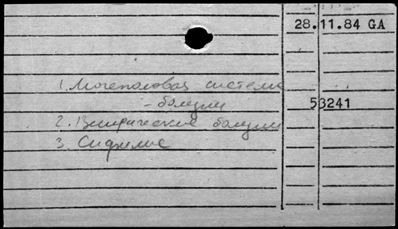 28.11.84 GA
1. Мочеполовая система
- болезни
53241
2. Венерические болезни
3. Сифилис